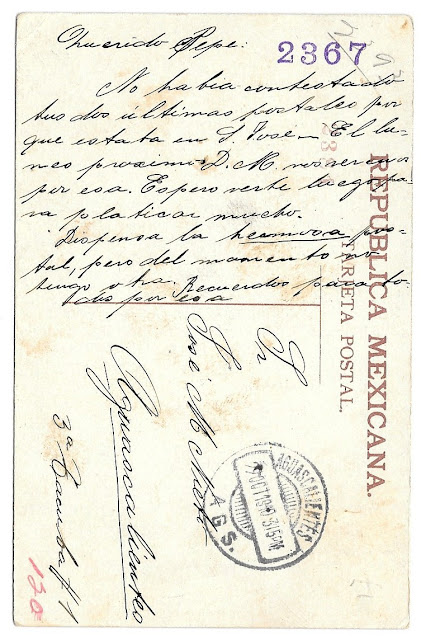 Querido Pepe:
2367
No habia contestado
tus dos últimas postales por
que estaba en S José. El lu-
nes proximo D. M. nos veremos
por esa. Espero verte luego pa-
ra platicar mucho.
Dispensa la hermosa pos-
tal, pero del momento no
tengo otra. Recuerdos para to-
dos por esa
REPUBLICA MEXICANA.
TARJETA POSTAL.
Sr
José M
Aguascalientes
3ª #1
AGUASCALIENTES
OCT 19
AGS.